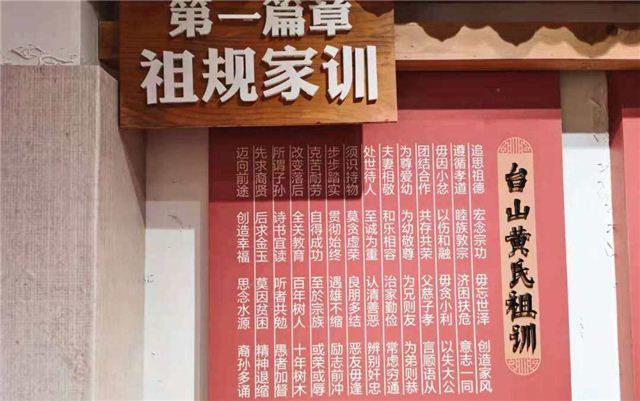 第一篇章
祖规家训
台山黄氏祖训
追思祖德 宏念宗功 毋忘世泽 创造家风
遵循孝道 睦族敦宗 济困扶危 意志一同
毋因小忿 以伤和融 毋贪小利 以失大公
团结合作 共存共荣 父慈子孝 言顺语从
为尊爱幼 为幼敬尊 为兄则友 为弟则恭
夫妻相敬 和乐相容 治家勤俭 常虑穷通
处世待人 至诚为重 认清善恶 辨别奸忠
须识持物 莫贪虚荣 良朋多结 恶友毋逢
步步踏实 贯彻始终 遇雄不缩 励志前冲
克苦耐劳 自得成功 至於宗族 或荣或辱
改变落后 全关教育 百年树人 十年树木
所谓子孙 诗书宜读 听者共勉 愚者加督
先求裔贤 后求金玉 莫因贫困 精神退缩
迈向前途 创造幸福 思念水源 裔孙多诵